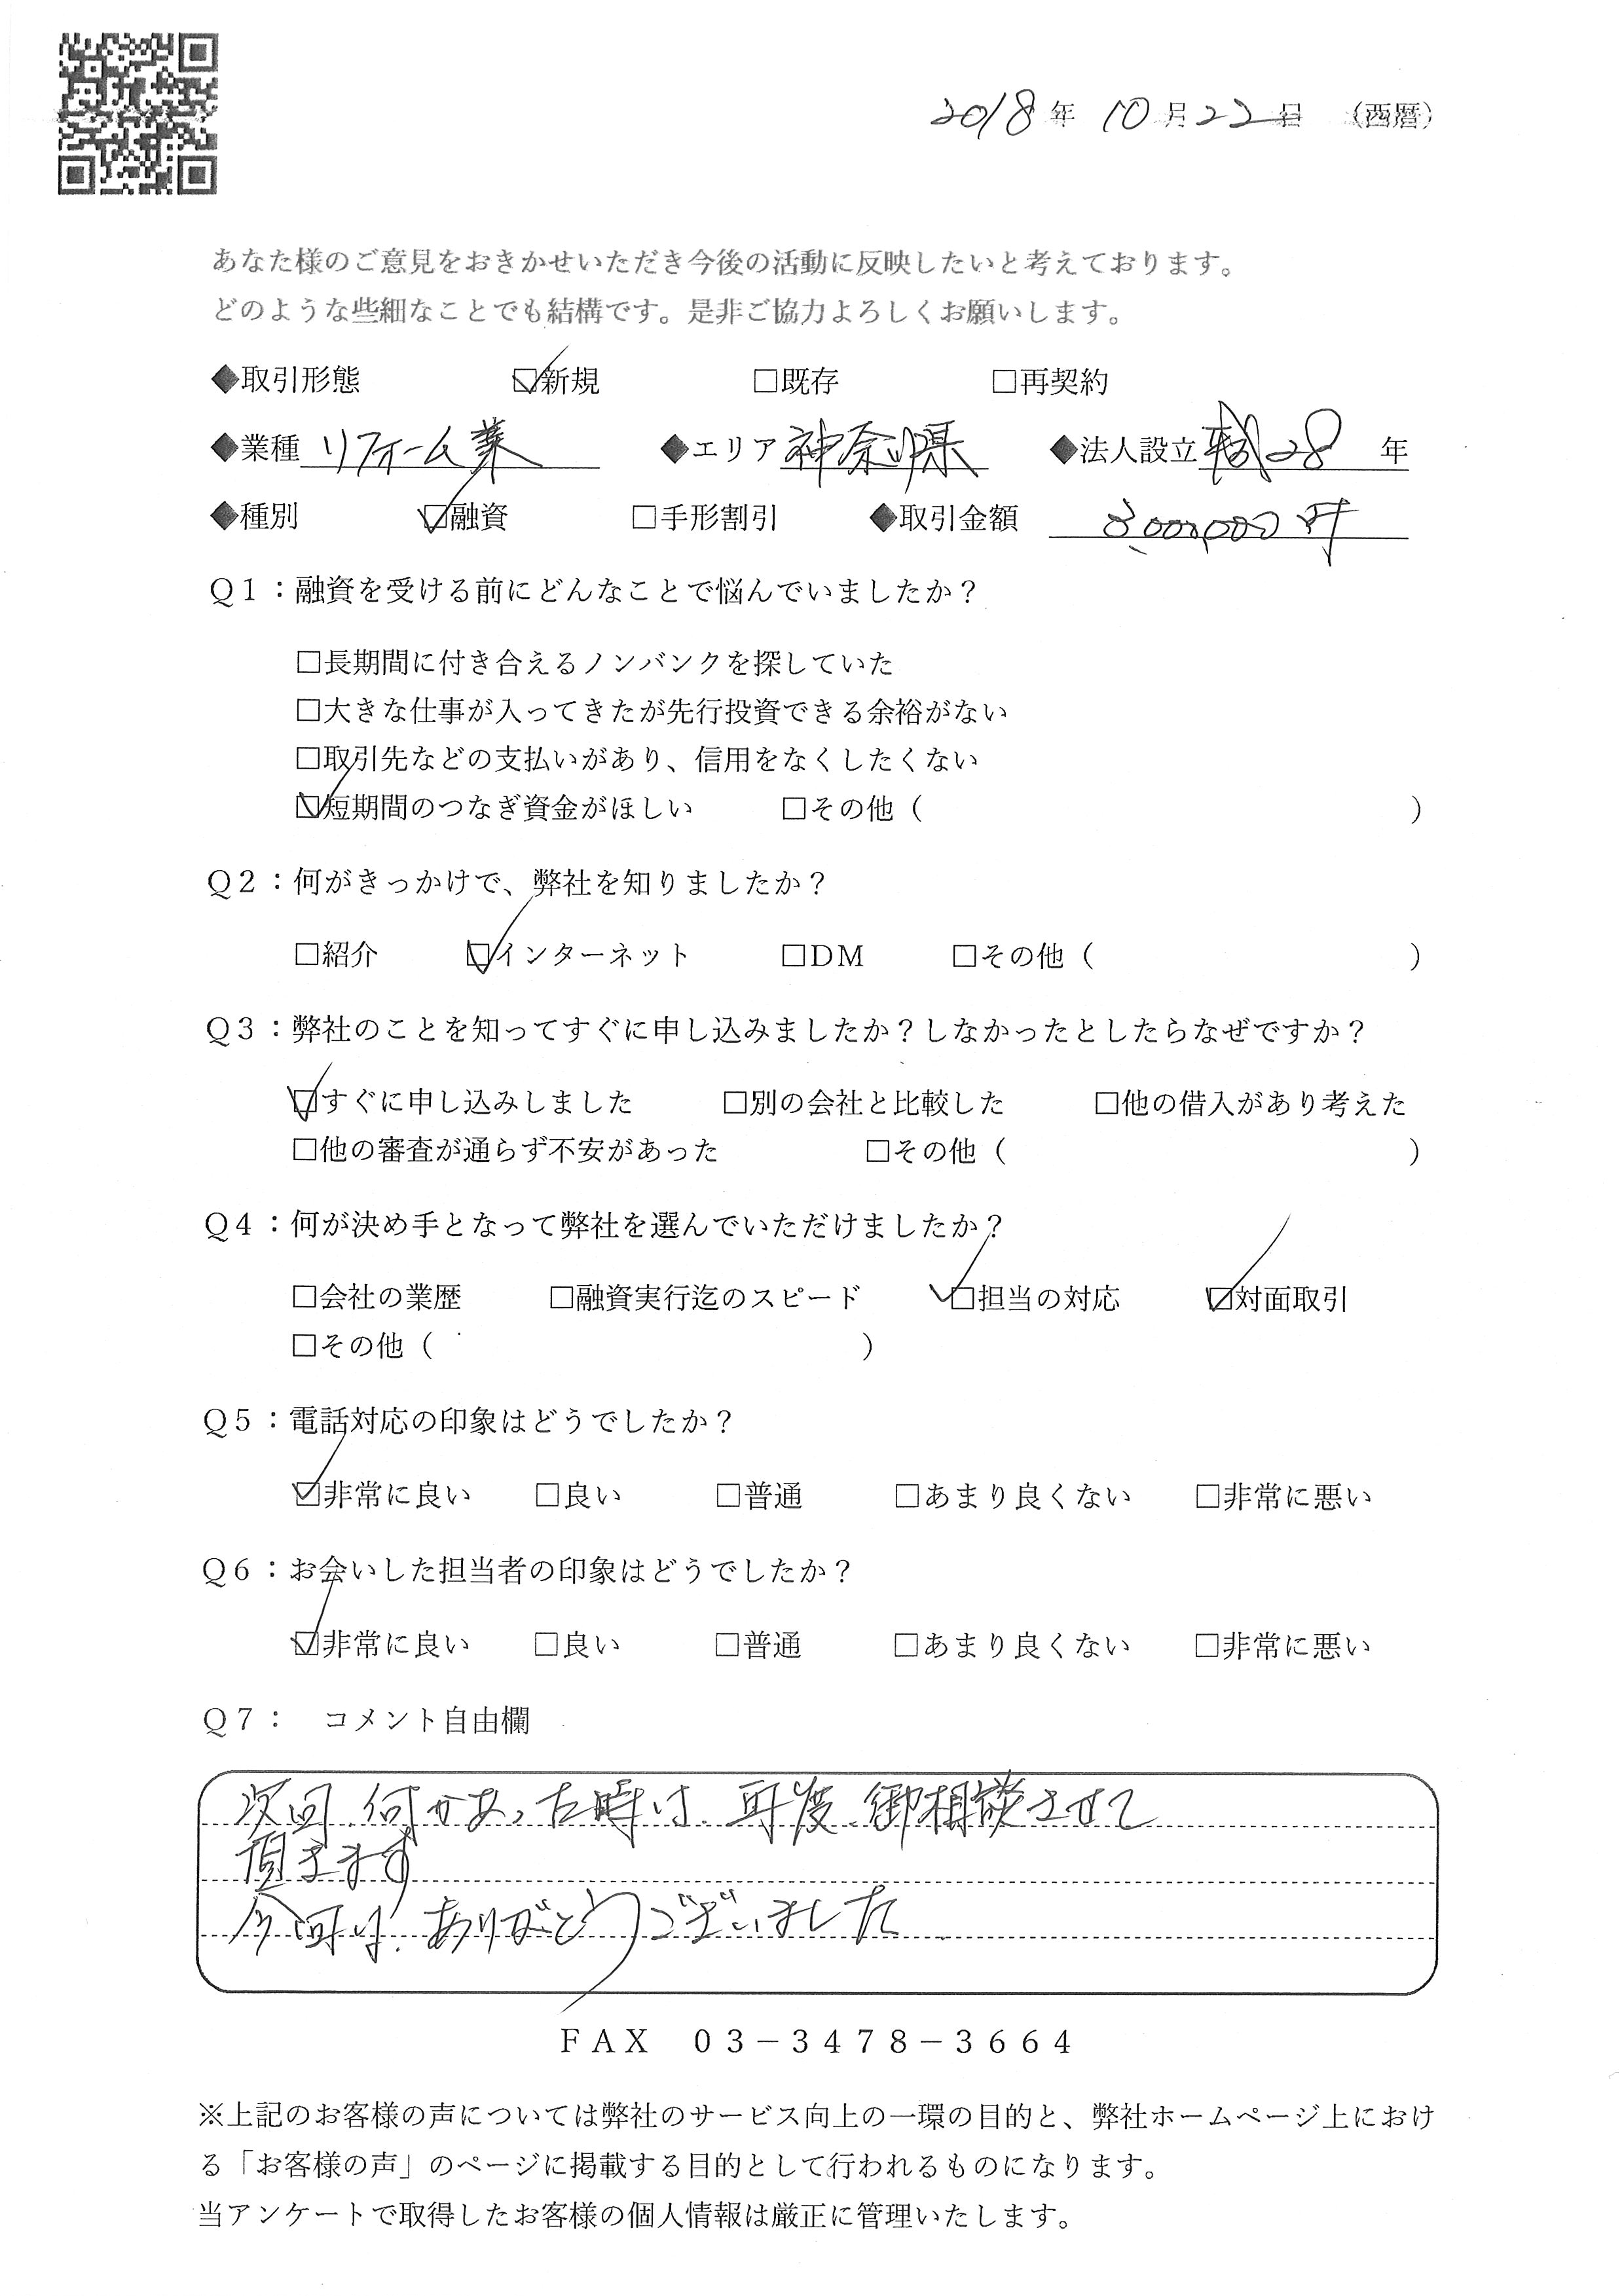 2018年 10月22日 （西暦）
あなた様のご意見をおきかせいただき今後の活動に反映したいと考えております。
どのような些細なことでも結構です。是非ご協力よろしくお願いします。
◆取引形態 ☑新規 □既存 □再契約
◆業種 リフォーム業 ◆エリア 神奈川県 ◆法人設立 平成28 年
◆種別 ☑融資 □手形割引 ◆取引金額 3,000,000円
Ｑ１：融資を受ける前にどんなことで悩んでいましたか？
□長期間に付き合えるノンバンクを探していた
□大きな仕事が入ってきたが先行投資できる余裕がない
□取引先などの支払いがあり、信用をなくしたくない
☑短期間のつなぎ資金がほしい □その他（ ）
Ｑ２：何がきっかけで、弊社を知りましたか？
□紹介 ☑インターネット □ＤＭ □その他（ ）
Ｑ３：弊社のことを知ってすぐに申し込みましたか？しなかったとしたらなぜですか？
☑すぐに申し込みしました □別の会社と比較した □他の借入があり考えた
□他の審査が通らず不安があった □その他（ ）
Ｑ４：何が決め手となって弊社を選んでいただけましたか？
□会社の業歴 □融資実行迄のスピード ☑担当の対応 ☑対面取引
□その他（ ）
Ｑ５：電話対応の印象はどうでしたか？
☑非常に良い □良い □普通 □あまり良くない □非常に悪い
Ｑ６：お会いした担当者の印象はどうでしたか？
☑非常に良い □良い □普通 □あまり良くない □非常に悪い
Ｑ７： コメント自由欄
次回、何かあった時は、再度、御相談させて
頂きます
今回は、ありがとうございました
ＦＡＸ ０３－３４７８－３６６４
※上記のお客様の声については弊社のサービス向上の一環の目的と、弊社ホームページ上におけ
る「お客様の声」のページに掲載する目的として行われるものになります。
当アンケートで取得したお客様の個人情報は厳正に管理いたします。